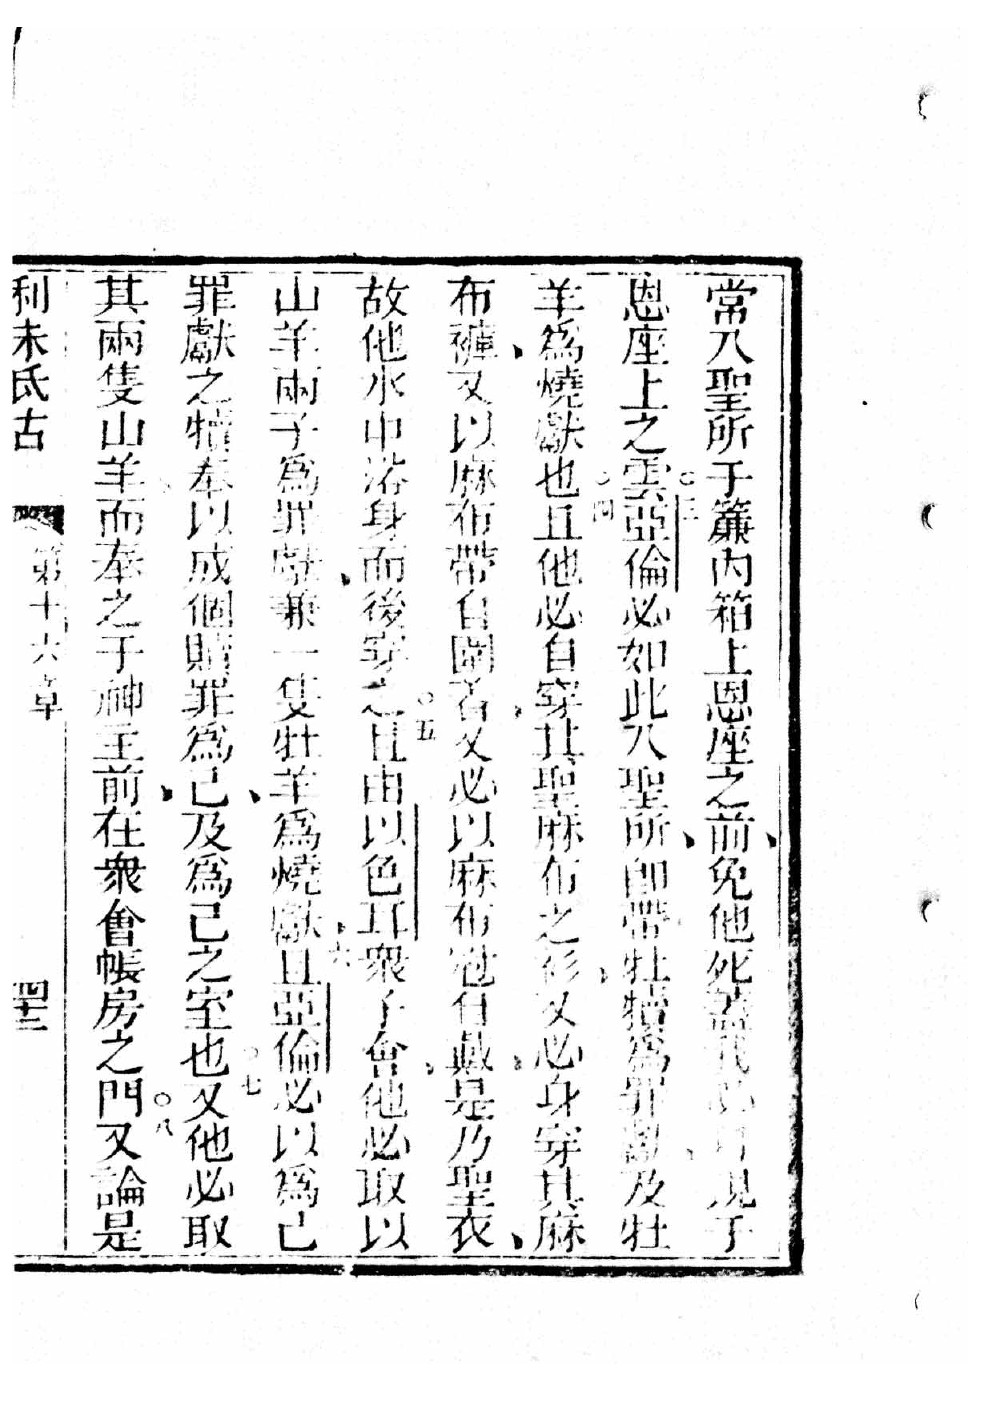 常入聖所于簾內箱上恩座之前、免他死蓋我必可現于
恩座上之雲○三亞倫必如此入聖所、即帶牡犢爲罪獻、及牡
羊爲燒獻也○四且他必自穿其聖麻布之衫、又必身穿其麻
布褲、又以麻布帶自圍着、又必以麻布冠自戴、是乃聖衣、
故他水中浴身而後穿之○五且由以色耳衆子會、他必取以
山羊兩子爲罪獻、兼一隻牡羊爲燒獻○六且亞倫必以爲己
罪獻之犢奉以成個贖罪爲己、及爲己之室也○七又他必取
其兩隻山羊、而奉之于神主前、在衆會帳房之門○八又論是
利未氏古 第十六章 四十二